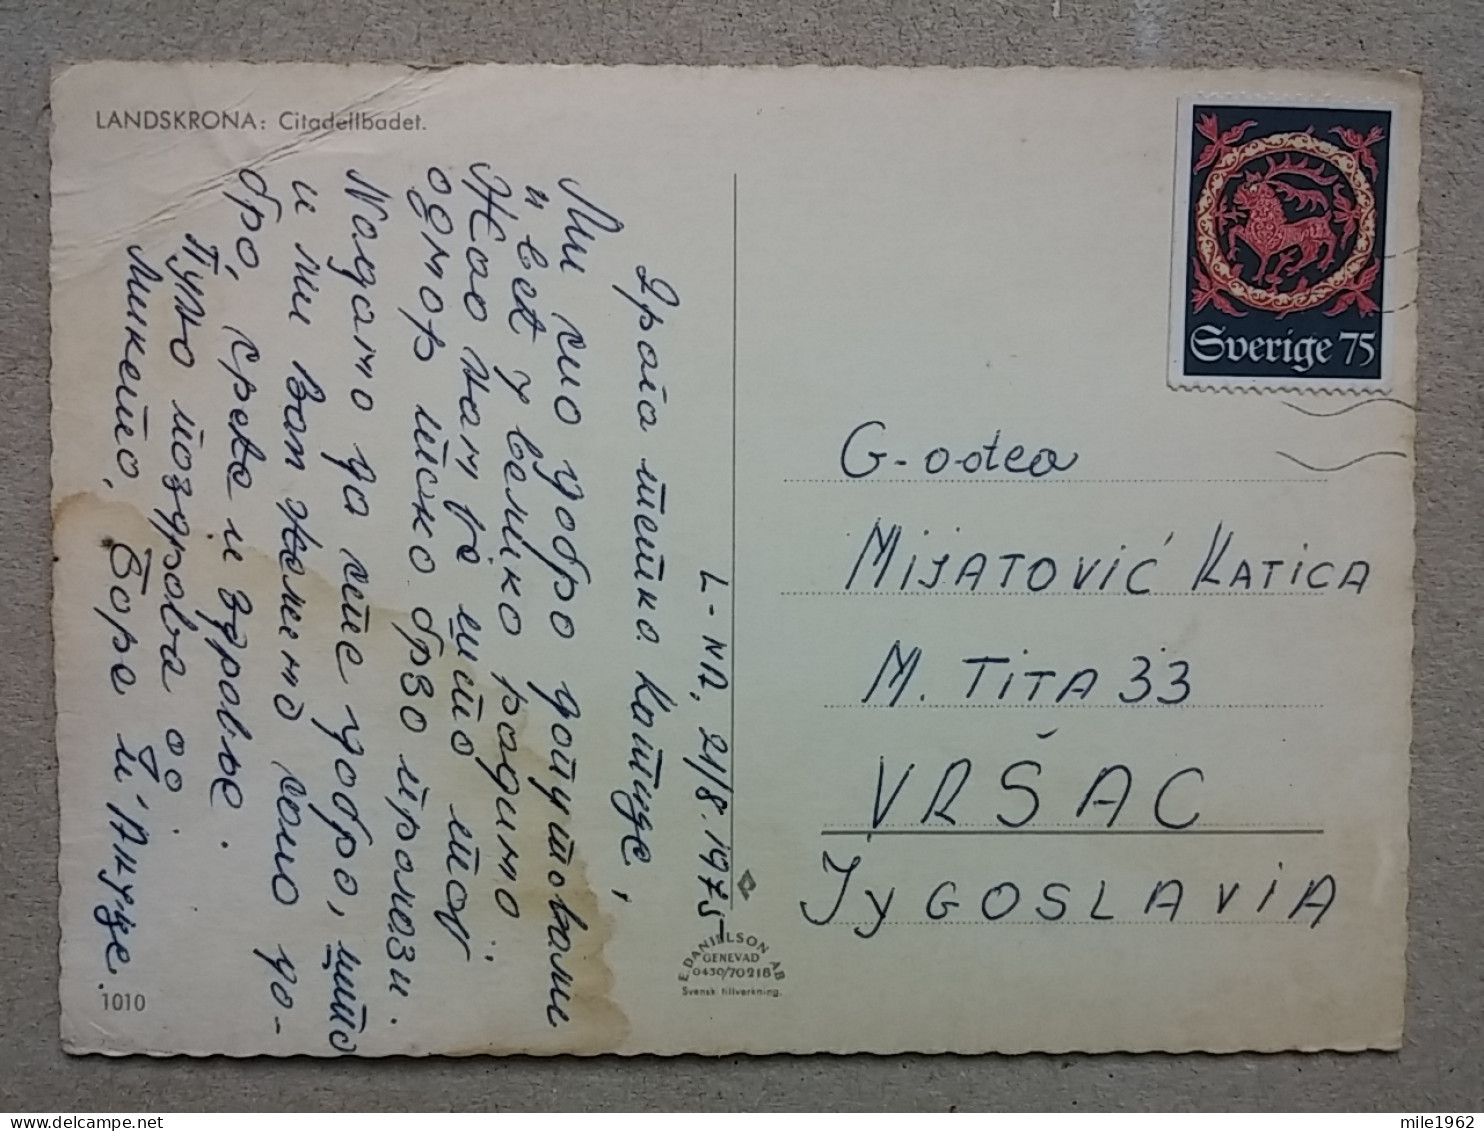 LANDSKRONA: Citadellbadet.
Sverige 75
L-NA, 21/8. 1975
Драга тетка Катице,
Ми смо добро допутовали
и већ у велико радимо
Жао нам је што тај
одмор тако брзо пролази.
Надамо да сте добро, што
и ми вам желимо само до-
бро, среća и здравље.
Пуно поздрава од
Микета, Боре и Анице.
G-odea
MIJATOVIĆ KATICA
M. TITA 33
VRŠAC
JyGOSLAVIA
E. DANIELSON AB
GENEVAD
0430/70218
Svensk tillverkning.
1010
mile1962